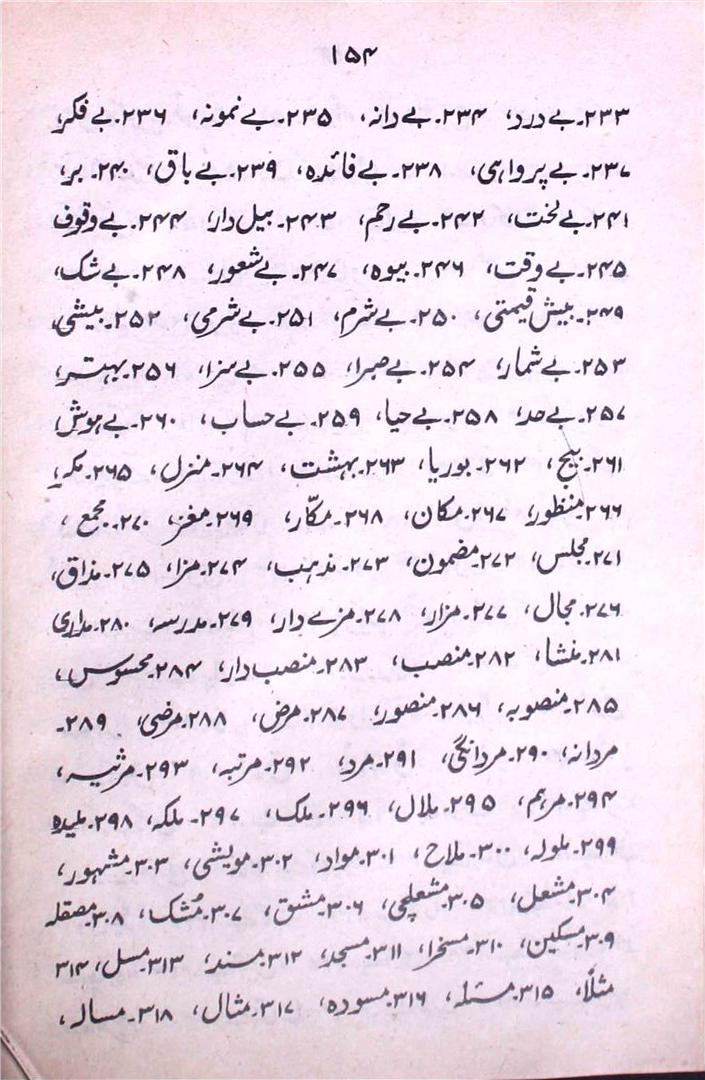 ۱۵۴
۲۳۳۔بے درد، ۲۳۴۔بے دانہ، ۲۳۵۔بے نمونہ، ۲۳۶۔بے فکر،
۲۳۷۔بے پرواہی، ۲۳۸۔بے فائدہ، ۲۳۹۔بے باق، ۲۴۰۔بر،
۲۴۱۔بے لخت، ۲۴۲۔بے رحم، ۲۴۳۔بیل دار، ۲۴۴۔بے وقوف
۲۴۵۔بے وقت، ۲۴۶۔بیوہ، ۲۴۷۔بے شعور، ۲۴۸۔بے شک،
۲۴۹۔بیش قیمتی، ۲۵۰۔بے شرم، ۲۵۱۔بے شرمی، ۲۵۲۔بیشی،
۲۵۳۔بے شمار، ۲۵۴۔بے صبر، ۲۵۵۔بے سزا، ۲۵۶۔بہتر،
۲۵۷۔بے حد، ۲۵۸۔بے حیا، ۲۵۹۔بے حساب، ۲۶۰۔بے ہوش،
۲۶۱۔بیج، ۲۶۲۔بوریا، ۲۶۳۔بہشت، ۲۶۴۔منزل، ۲۶۵۔مکر،
۲۶۶۔منظور، ۲۶۷۔مکان، ۲۶۸۔مکّار، ۲۶۹۔مغز، ۲۷۰۔مجمع،
۲۷۱۔مجلس، ۲۷۲۔مضمون، ۲۷۳۔مذہب، ۲۷۴۔مزا، ۲۷۵۔مذاق،
۲۷۶۔مجال، ۲۷۷۔مزار، ۲۷۸۔مزے دار، ۲۷۹۔مدرسہ، ۲۸۰۔مداری
۲۸۱۔منشا، ۲۸۲۔منصب، ۲۸۳۔منصب دار، ۲۸۴۔محسوس،
۲۸۵۔منصوبہ، ۲۸۶۔منصور، ۲۸۷۔مرض، ۲۸۸۔مرضی، ۲۸۹۔
مردانہ، ۲۹۰۔مردانگی، ۲۹۱۔مرد، ۲۹۲۔مرتبہ، ۲۹۳۔مرثیہ،
۲۹۴۔مرہم، ۲۹۵۔ملال، ۲۹۶۔ملک، ۲۹۷۔ملکہ، ۲۹۸۔ملیدہ
۲۹۹۔ملولہ، ۳۰۰۔ملاح، ۳۰۱۔مواد، ۳۰۲۔مویشی، ۳۰۳۔مشہور،
۳۰۴۔مشعل، ۳۰۵۔مشعلچی، ۳۰۶۔مشق، ۳۰۷۔مُشک، ۳۰۸۔مصقلہ
۳۰۹۔مسکین، ۳۱۰۔مسخرا، ۳۱۱۔مسجد، ۳۱۲۔مسند، ۳۱۳۔مسل، ۳۱۴
مثلاً، ۳۱۵۔مسئلہ، ۳۱۶۔مسودہ، ۳۱۷۔مثال، ۳۱۸۔مسالہ،